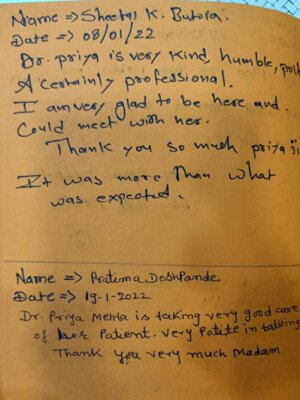 Name => Sheetal K. Butola.
Date => 08/01/22
Dr. priya is very kind, humble,
A certainly professional.
I am very glad to be here and.
Could meet with her.
Thank you so much priya ji
It was more than what
was expected.
Name => Pratima Deshpande
Date => 19-1-2022
Dr. Priya Mehta is taking very good care
of her Patient. Very Polite in talking
Thank you very much Madam